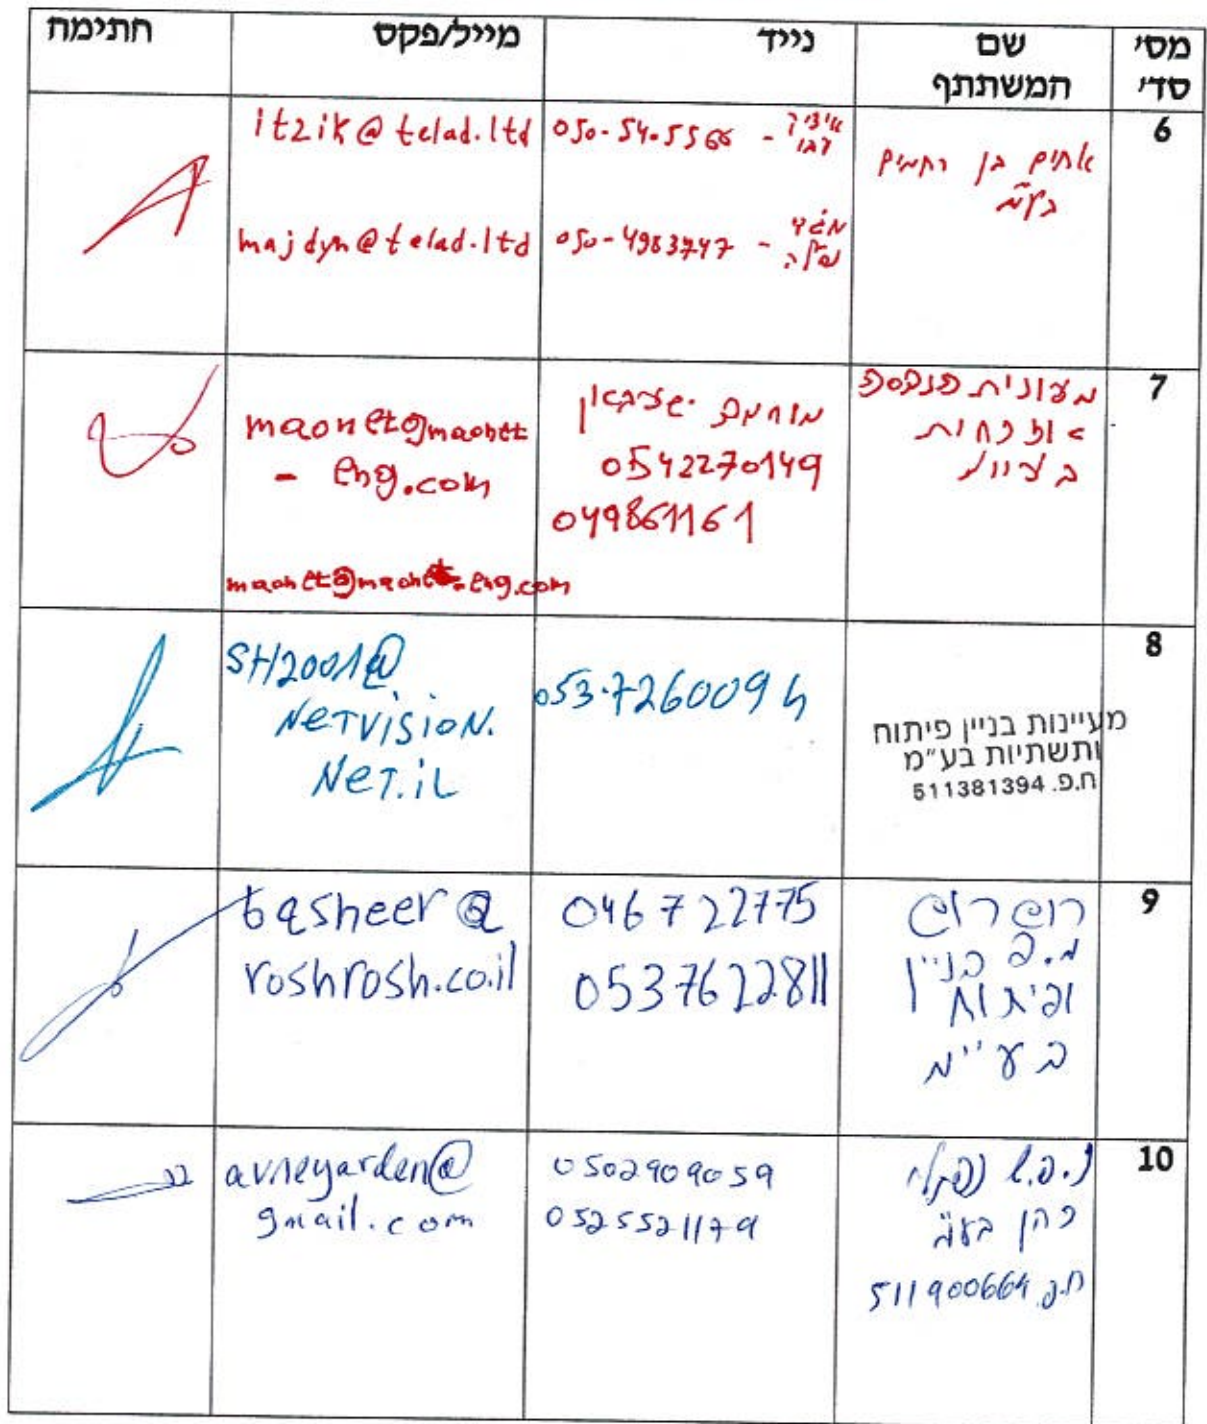 מס' סד' שם המשתתף נייד מייל/פקס חתימה
6
אחים בן רחמים
בע"מ
050-5405566 - איציק
itzik@telad.ltd
050-4983747 -
majdyn@telad.ltd
7
מעונית
מוחמד שעבאן
0542270149
049861161
maonet@maonet
-eng.com
maonet@maonet-eng.com
8
מעיינות בניין פיתוח
ותשתיות בע"מ
ח.פ. 511381394
053-7260094
SH2001@
NETVISION.
NET.IL
9
רוש רוש
מ.פ בניין
ופיתוח
בע"מ
046722775
0537622811
basheer@
roshrosh.co.il
10
נ.פ.ש נפתלי
כהן בע"מ
ח.פ. 511900664
0502909059
0525521179
avneyarden@
gmail.com